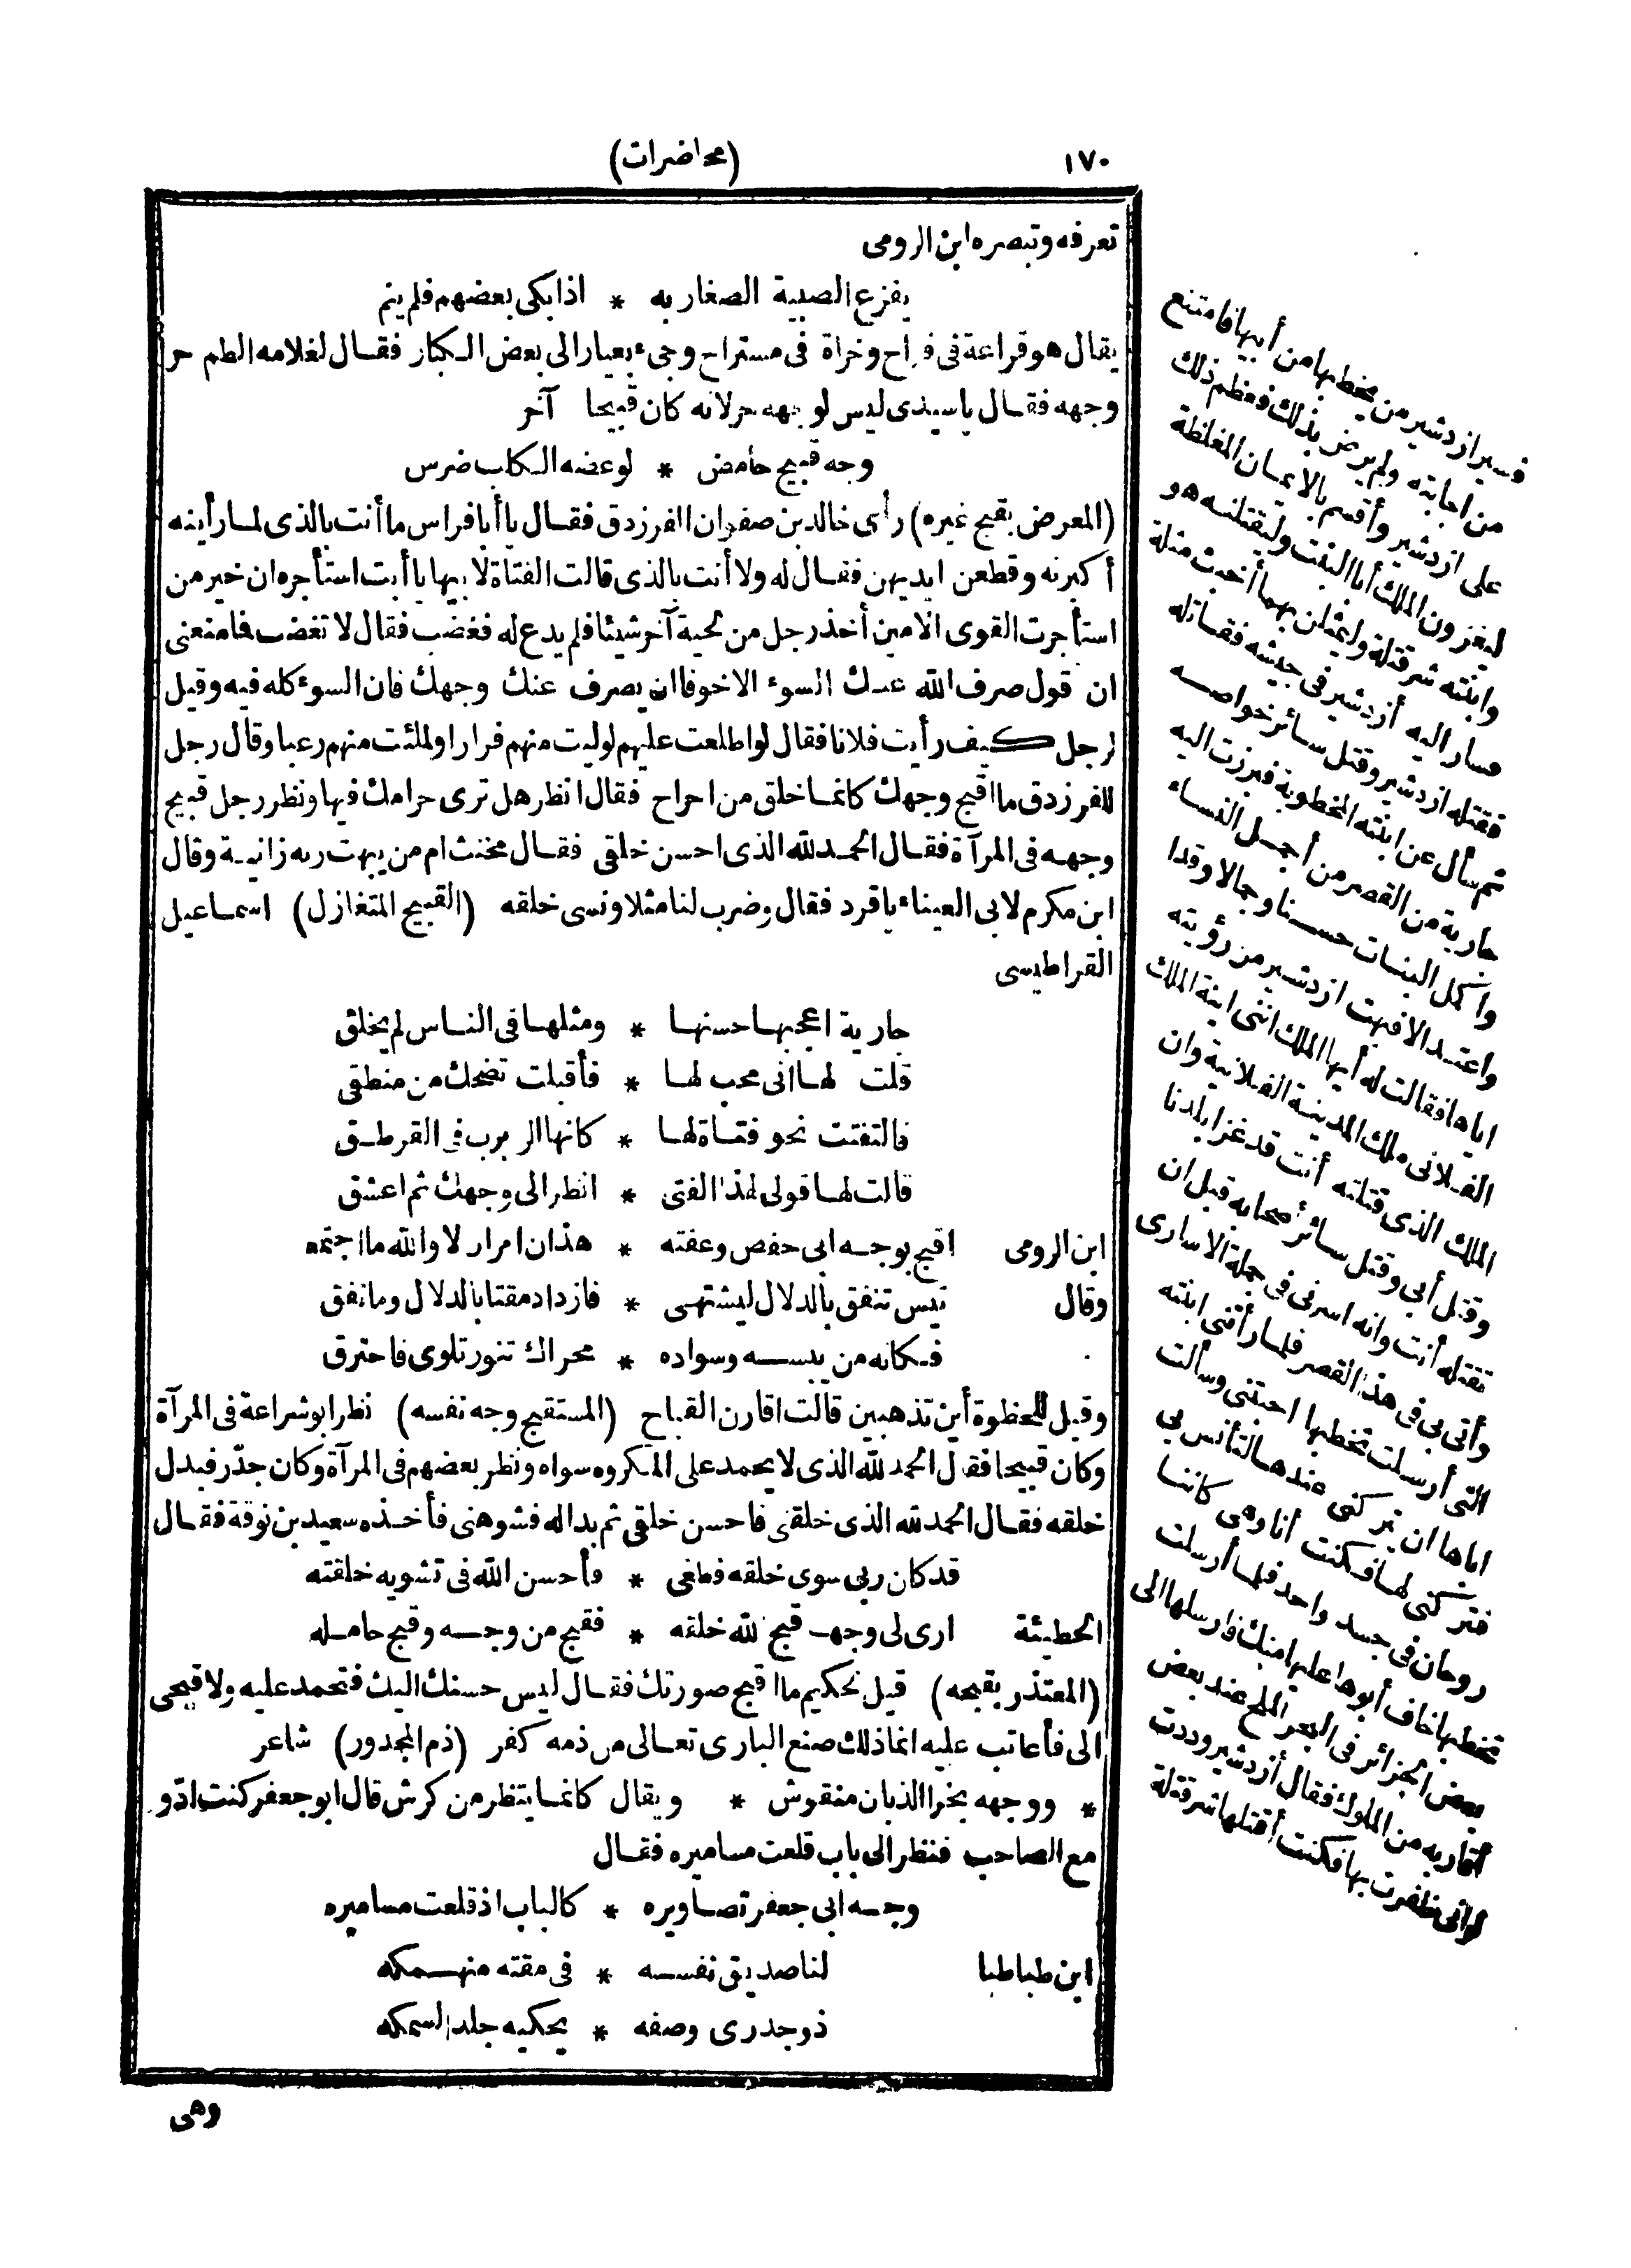 ١٧٠
(محاضرات)
تعرفه وتبصره ابن الرومى
يفزع الصبية الصغار به * اذا بكى بعضهم فلم ينم
يقال هو قراعة فى فراح وخراة فى مستراح وجىء بعيار الى بعض الكبار فقال لغلامه الطم حر
وجهه فقال يا سيدى ليس لوجهه حر لانه كان قبيحا آخر
وجه قبيح حامض * لو عضه الكلب ضرس
(المعرض بقبح غيره) رأى خالد بن صفوان الفرزدق فقال يا أبا فراس ما أنت بالذى لما رأينه
أكبرنه وقطعن ايديهن فقال له ولا أنت بالذى قالت الفتاة لابيها يا أبت استأجره ان خير من
استأجرت القوى الامين أخذ رجل من لحية آخر شيئا فلم يدع له فغضب فقال لا تغضب فما منعنى
ان قول صرف الله عنك السوء الا خوفا ان يصرف عنك وجهك فان السوء كله فيه وقيل
لرجل كيف رأيت فلانا فقال لو اطلعت عليهم لوليت منهم فرارا ولملئت منهم رعبا وقال رجل
للفرزدق ما اقبح وجهك كانما خلق من احراح فقال انظر هل ترى حرامك فيها ونظر رجل قبيح
وجهه فى المرآة فقال الحمد لله الذى احسن خلقى فقال مخنث ام من يبهت ربه زانية وقال
ابن مكرم لابى العيناء يا قرد فقال وضرب لنا مثلا ونسى خلقه (القبيح المتغازل) اسماعيل
القراطيسى
جارية اعجبها حسنها * ومثلها فى الناس لم يخلق
قلت لها انى محب لها * فأقبلت تضحك من منطقى
فالتفتت نحو فتاة لها * كانها الربرب فى القرطق
قالت لها قولى لهذا الفتى * انظر الى وجهك ثم اعشق
ابن الرومى اقبح بوجه ابى حفص وعفته * هذان امرار لا والله ما اجتمعه
وقال تيس تنفق بالدلال ليشتهى * فازداد مقتا بالدلال وما نفق
فكانه من يبسه وسواده * محراك تنور تلوى فاحترق
وقيل لجحظوة أين تذهبين قالت اقارن القباح (المستقبح وجه نفسه) نظر ابو شراعة فى المرآة
وكان قبيحا فقال الحمد لله الذى لا يحمد على المكروه سواه ونظر بعضهم فى المرآة وكان جدّر فبدل
خلقه فقال الحمد لله الذى خلقنى فاحسن خلقى ثم بداله فشوهنى فأخذه سعيد بن نوقة فقال
قد كان ربى سوى خلقه فطغى * فأحسن الله فى تشويه خلقته
الحطيئة ارى لى وجها قبح الله خلقه * فقبح من وجه وقبح حامله
(المعتذر بقبحه) قيل لحكيم ما اقبح صورتك فقال ليس حسنك اليك فتحمد عليه ولا قبحى
الى فأعاتب عليه انما ذلك صنع البارى تعالى من ذمه كفر (ذم المجدور) شاعر
* ووجهه بخرا الذبان منقوش * ويقال كانما ينظر من كرش قال ابو جعفر كنت ادّو
مع الصاحب فنظر الى باب قلعت مساميره فقال
وجه ابى جعفر تصاويره * كالباب اذ قلعت مساميره
ابن طباطبا لنا صديق نفسه * فى مقته منهمكه
ذو جدرى وصفه * يحكيه جلد السمكه
وهى
فسير ازدشير من يخطبها من أبيها فامتنع
من اجابته ولم يرض بذلك فعظم ذلك
على ازدشير وأقسم بالايمان المغلظة
ليغزون الملك أبا البنت وليقتلنه هو
وابنته شر قتلة وليمثلن بهما أخبث مثلة
فسار اليه أزدشير فى جيشه فقاتله
فقتله ازدشير وقتل سائر خواصه
ثم سأل عن ابنته المخطوبة فبرزت اليه
جارية من القصر من أجمل النساء
وأكمل البنات حسنا وجمالا وقدا
واعتدالا فبهت ازدشير من رؤيته
اياها فقالت له أيها الملك اننى ابنة الملك
الفلانى ملك المدينة الفلانية وان
الملك الذى قتلته أنت قد غزا بلدنا
وقتل أبى وقتل سائر أصحابه قبل ان
تقتله أنت وانه اسرنى فى جملة الاسارى
وأتى بى فى هذا القصر فلما رأتنى ابنته
التى أرسلت تخطبها احبتنى وسألت
اباها ان يتركنى عندها لتأنس بى
فتركنى لها فكنت أنا وهى كاننا
روحان فى جسد واحد فلما أرسلت
تخطبها خاف أبوها عليها منك فارسلها الى
بعض الجزائر فى البحر الملح عند بعض
أقاربه من الملوك فقال أزدشير وددت
لو أنى ظفرت بها فكنت أقتلها شر قتلة